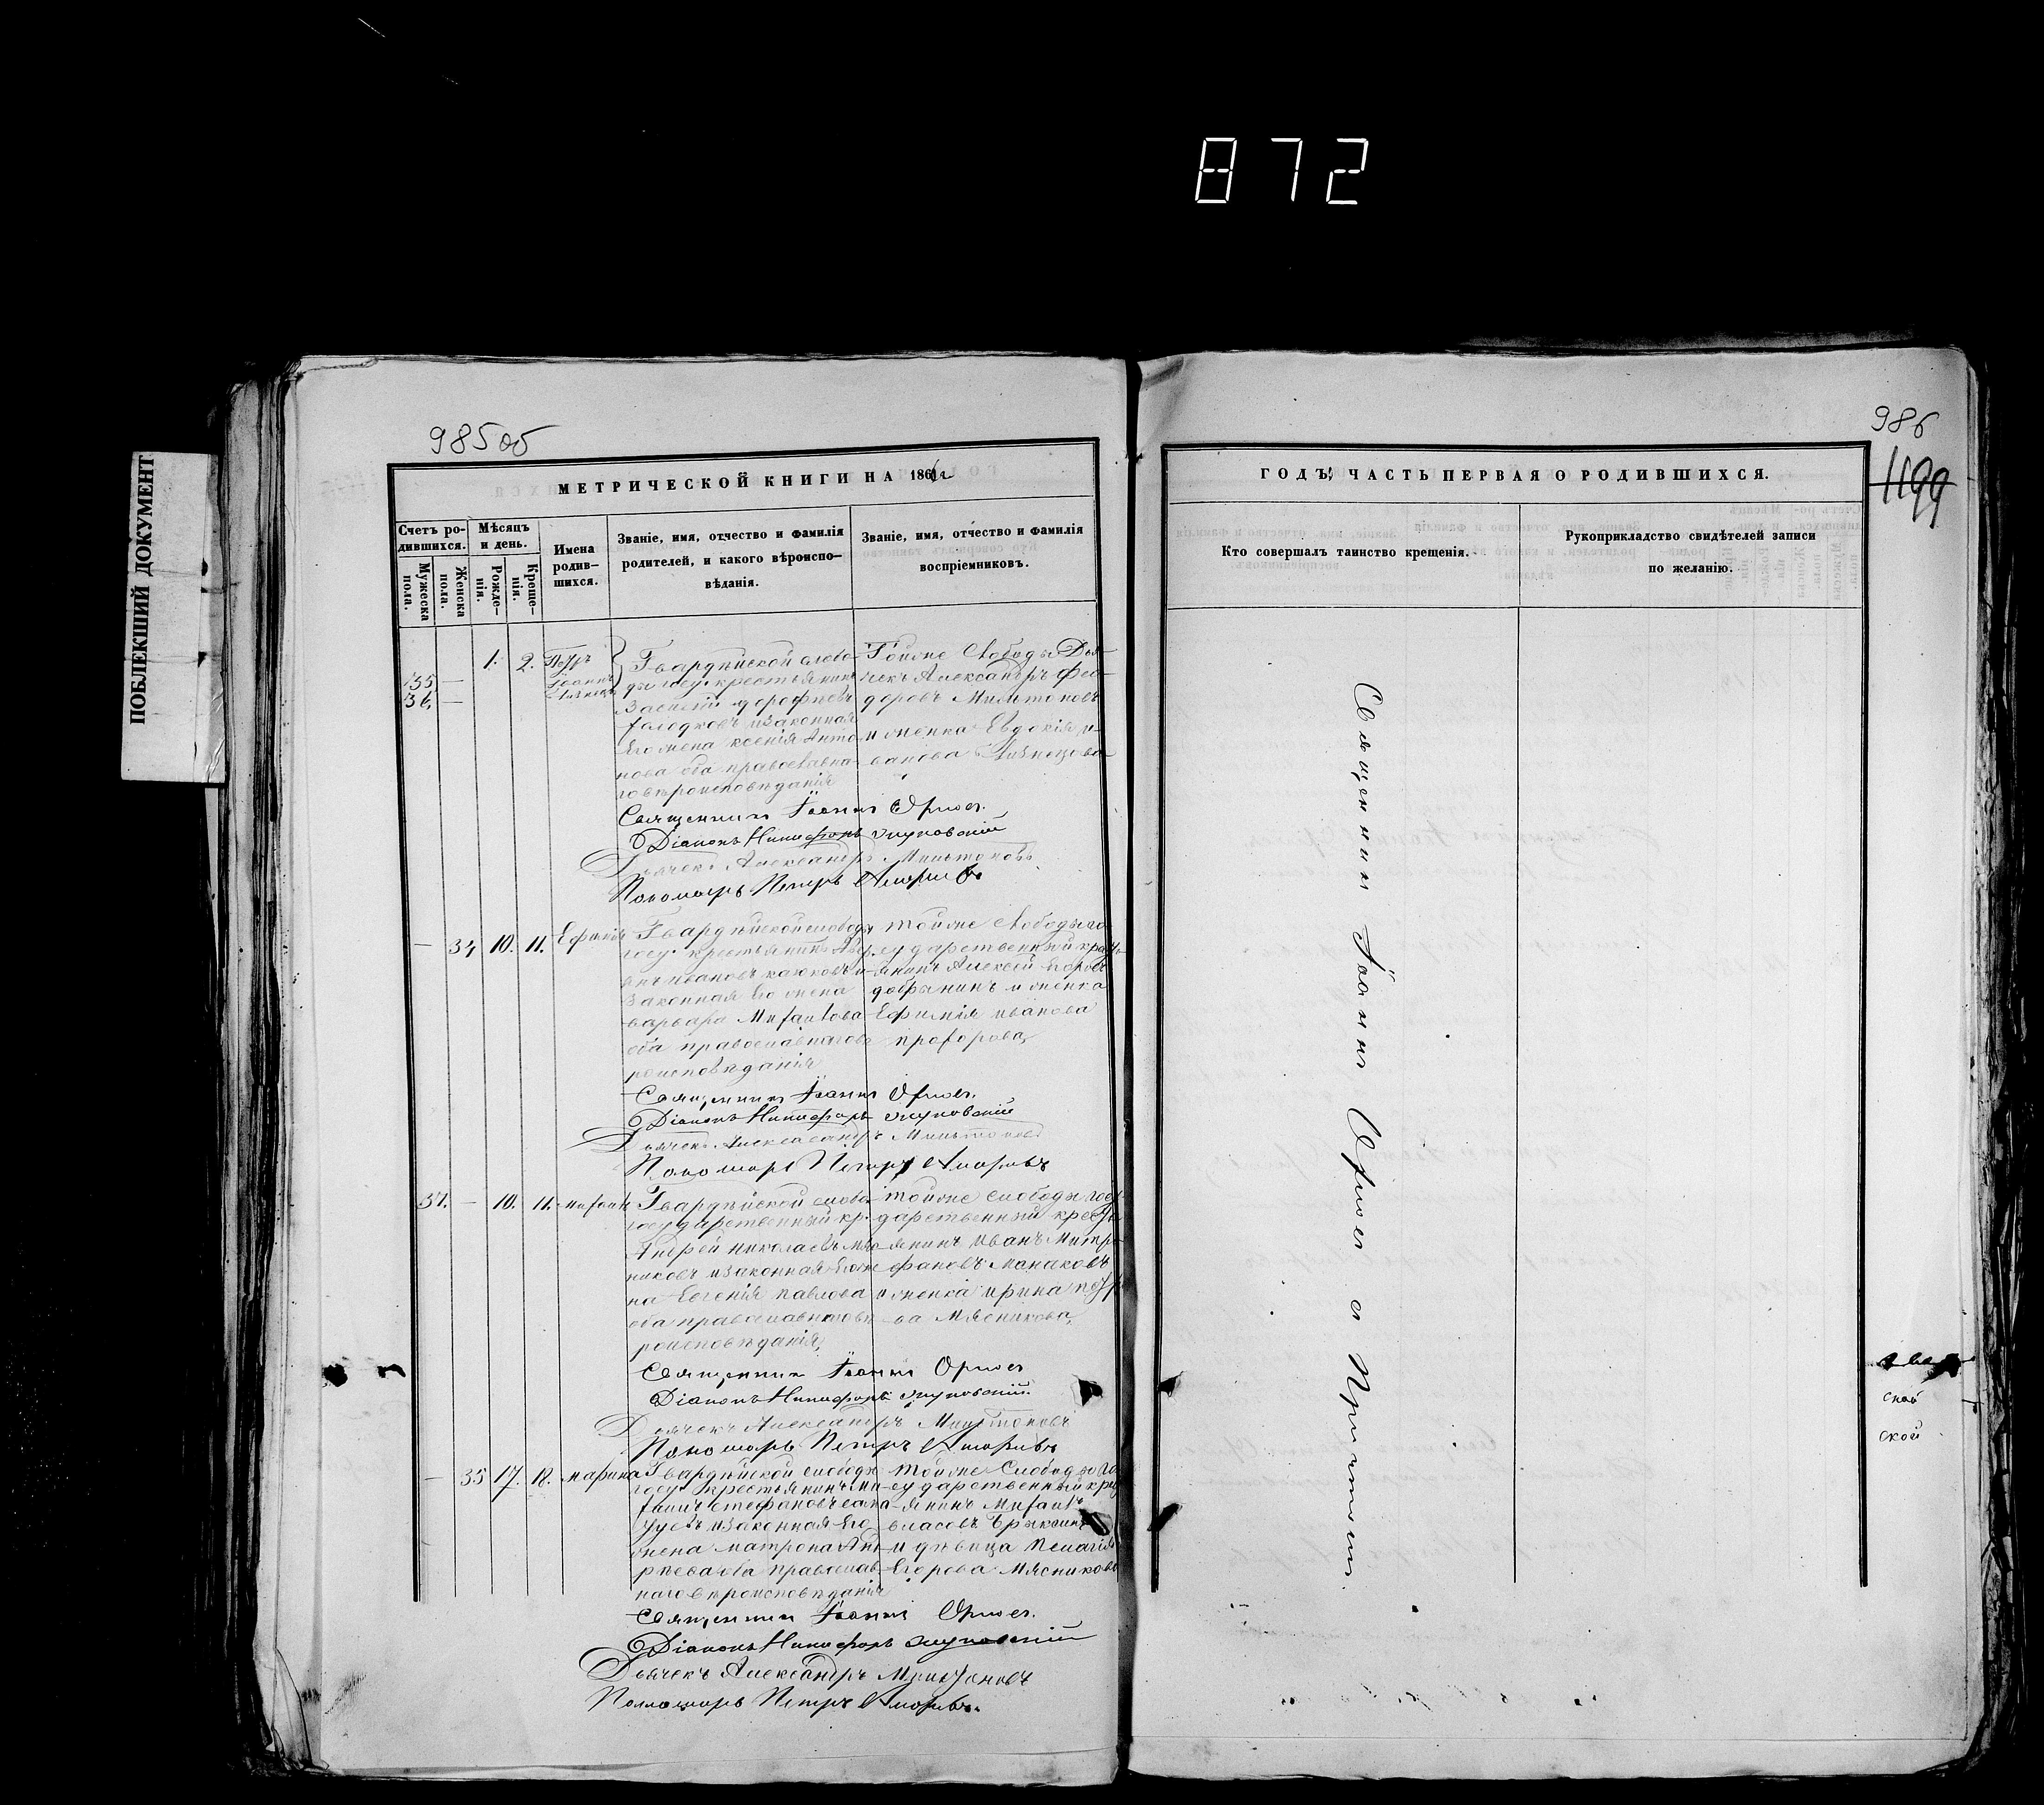 872
ПОБЛЕКШИЙ ДОКУМЕНТ
985об
МЕТРИЧЕСКОЙ КНИГИ НА 186
Счетъ ро-
дившихся.
Мужеска
пола.
Женска
пола.
Мѣсяцъ
и день.
Рожде-
нія.
Креще-
нія.
Имена
родив-
шихся.
Званіе, имя, отчество и фамилія
родителей, и какого вѣроиспо-
вѣданія.
Званіе, имя, отчество и фамилія
воспріемниковъ.
135 —
36. —
1. 2. Петръ
Іоаннъ
Гвардѣйской слобо-
ды госу. крестьянинъ
Василій дорофѣевъ
и законная
Его жена ксенія Анто-
нова оба православна-
го вѣроисповѣданія
Тойже слободы Дья-
чекъ Александръ Фео-
доровъ Мильтоновъ
и женка Евдокія и-
ванова
Священникъ Іоаннъ Орлов.
Діаконъ Никифоръ
Дьячекъ Александръ Мильтоновъ
Пономарь Петръ
— 34 10. 11. Ефимія
Гвардѣйской слободы
госу. крестьянинъ
ивановъ каюковъ и
законная Его жена
варвара Михаилова
оба православнагове
роисповѣданія
тойже слободы го-
сударственный крест-
янинъ Алексѣй Егоровъ
добрынинъ и женка
Ефимія иванова
прохорова
Священникъ Іоаннъ Орлов.
Діаконъ Никифоръ
Дьячекъ Александръ Мильтоновъ
Пономарь Петръ
37. — 10. 11. михаилъ
Гвардѣйской слобо
государственный кр.
Андрей николаевъ мяс
никовъ и законная Его же
на Евгенія павлова
оба православнагове
роисповѣданія
тойже слободы госу
дарственный кресть
янинъ иванъ Митро
фановъ Монаковъ
и женка ирина петро
ва Мясникова
Священникъ Іоаннъ Орлов
Діаконъ Никифоръ
Дьячекъ Александръ Мильтоновъ
Пономарь Петръ
— 35 17. 18. марина
Гвардѣйской слободы
госу. крестьянинъ ми
хаилъ стефановъ
и законная Его
жена матрона Анд
рѣева оба православ
наго вѣроисповѣданія
тойже слободы го
сударственный крест
янинъ Михаилъ
власовъ
и дѣвица пелагія
Егорова мясникова
Священникъ Іоаннъ Орлов.
Діаконъ Никифоръ
Дьячекъ Александръ Мильтоновъ
Пономарь Петръ
986
1199
ГОДЪ, ЧАСТЬ ПЕРВАЯ О РОДИВШИХСЯ.
Кто совершалъ таинство крещенія.
Рукоприкладство свидѣтелей записи
по желанію.
Священникъ Іоаннъ Орлов с Причтом.
ской
ской